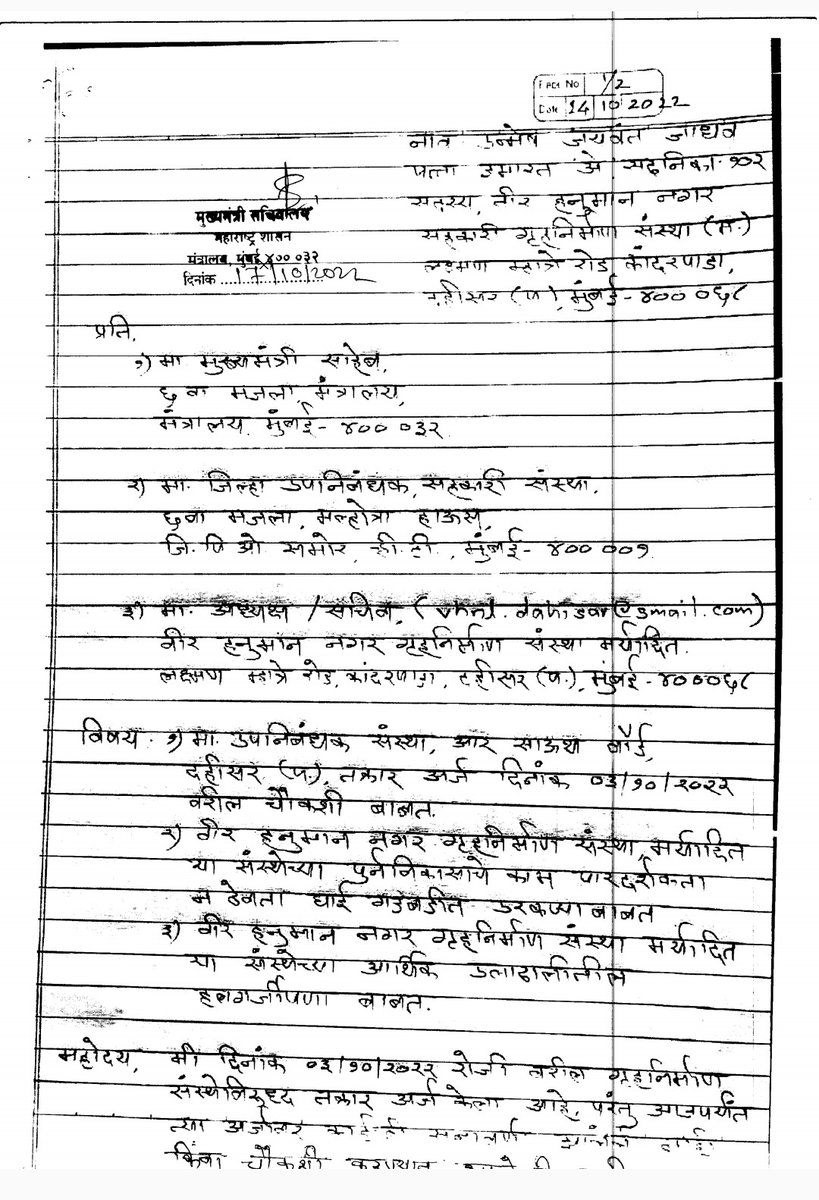 PAGE No 1/2
Date 14/10/2022
नाव उन्मेष जयवंत जाधव
पत्ता इमारत अे सदनिका-१०२
सदस्य, वीर हनुमान नगर
सहकारी गृहनिर्माण संस्था (म.)
लक्ष्मण म्हात्रे रोड, कांदरपाडा,
दहीसर (प), मुंबई-४०००६८
मुख्यमंत्री सचिवालय
महाराष्ट्र शासन
मंत्रालय, मुंबई ४०० ०३२
दिनांक 17/10/2022
प्रति,
१) मा मुख्यमंत्री साहेब,
६ वा मजला, मंत्रालय,
मंत्रालय, मुंबई- ४०० ०३२
२) मा. जिल्हा उपनिबंधक, सहकारी संस्था,
६वा मजला, मल्होत्रा हाऊस,
जि.पि.ओ समोर, व्ही.टी., मुंबई- ४०० ००१
३) मा. अध्यक्ष / सचिव, (vhnl.dahisar@gmail.com)
वीर हनुमान नगर गृहनिर्माण संस्था मर्यादित.
लक्ष्मण म्हात्रे रोड, कांदरपाडा, दहीसर (प.), मुंबई-४०००६८
विषय - १) मा. उपनिबंधक संस्था, आर साऊथ वॉर्ड,
दहीसर (प.), तक्रार अर्ज दिनांक ०३/१०/२०२२
वरील चौकशी बाबत.
२) वीर हनुमान नगर गृहनिर्माण संस्था, मर्यादित
या संस्थेच्या पुर्नविकासाचे काम पारदर्शकता
न ठेवता घाई गडबडीत उरकण्या बाबत
३) वीर हनुमान नगर गृहनिर्माण संस्था मर्यादित
या संस्थेच्या आर्थिक उलाढालीतील
हलगर्जीपणा बाबत.
महोदय, मी दिनांक ०३/१०/२०२२ रोजी वरील गृहनिर्माण
संस्थेविरुध्द तक्रार अर्ज केला आहे, परंतु आजपर्यंत
त्या अर्जावर
किंवा चौकशी